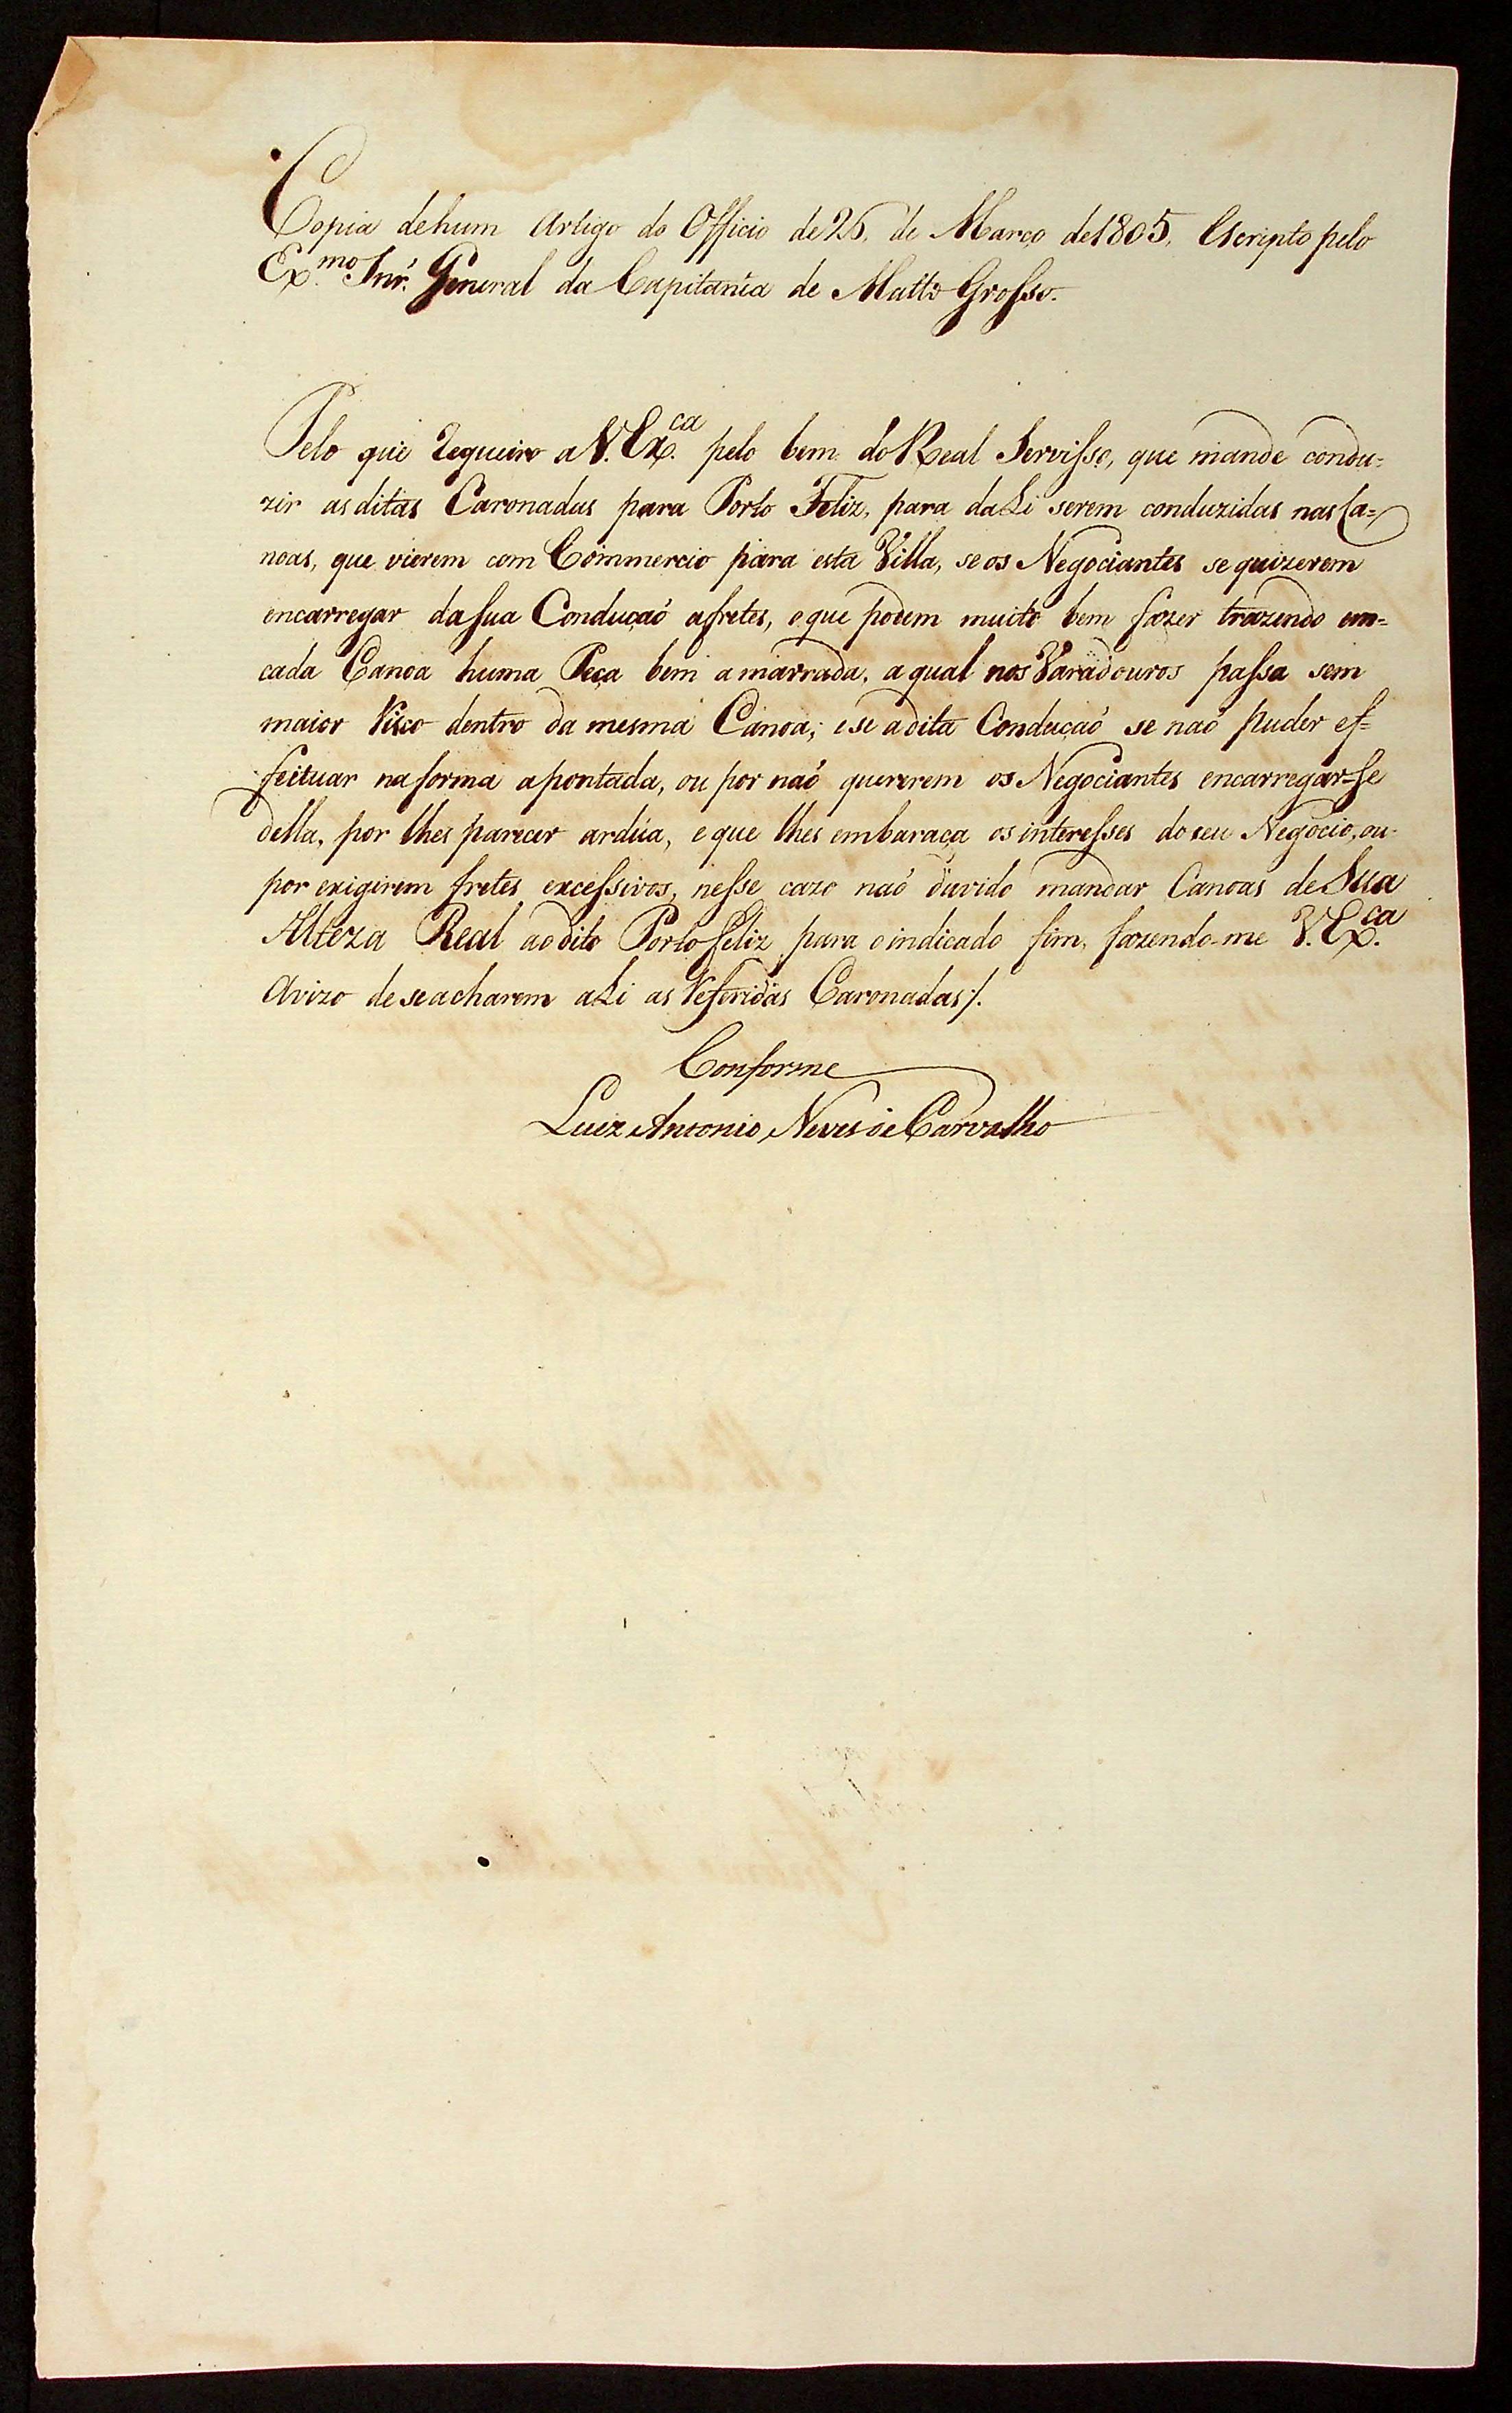 Copia dehum Artigo do Officio de 26, de Março de 1805, Escripto pelo
Ex.mo Snr. General da Capitania de Matto Grosso.
Pelo que requeiro a V. Ex.ca pelo bem do Real Servisso, que mande condu=
zir as ditas Caronadas para Porto Feliz, para daLi serem conduzidas nas Ca=
noas, que vierem com Commercio para esta Villa, se os Negociantes se quizerem
encarregar da sua Conduçaõ a fretes, o que podem muito bem fazer trazendo em=
cada Canoa huma Peça bem amarrada, a qual nos Varadouros passa sem
maior risco dentro da mesma Canoa; e se a dita Conduçaõ se naõ puder ef=
feituar na forma apontada, ou por naõ quererem os Negociantes encarregar-se
della, por lhes parecer ardúa, e que lhes embaraça os interesses do seu Negocio, ou
por exigirem fretes excessivos, nesse cazo naõ duvido mandar Canoas de Sua
Alteza Real ao dito Porto feliz para o indicado fim, fazendo-me V. Ex.ca
Avizo de se acharem aLi as referidas Caronadas /.
Conforme
Luiz Antonio Neves de Carvalho